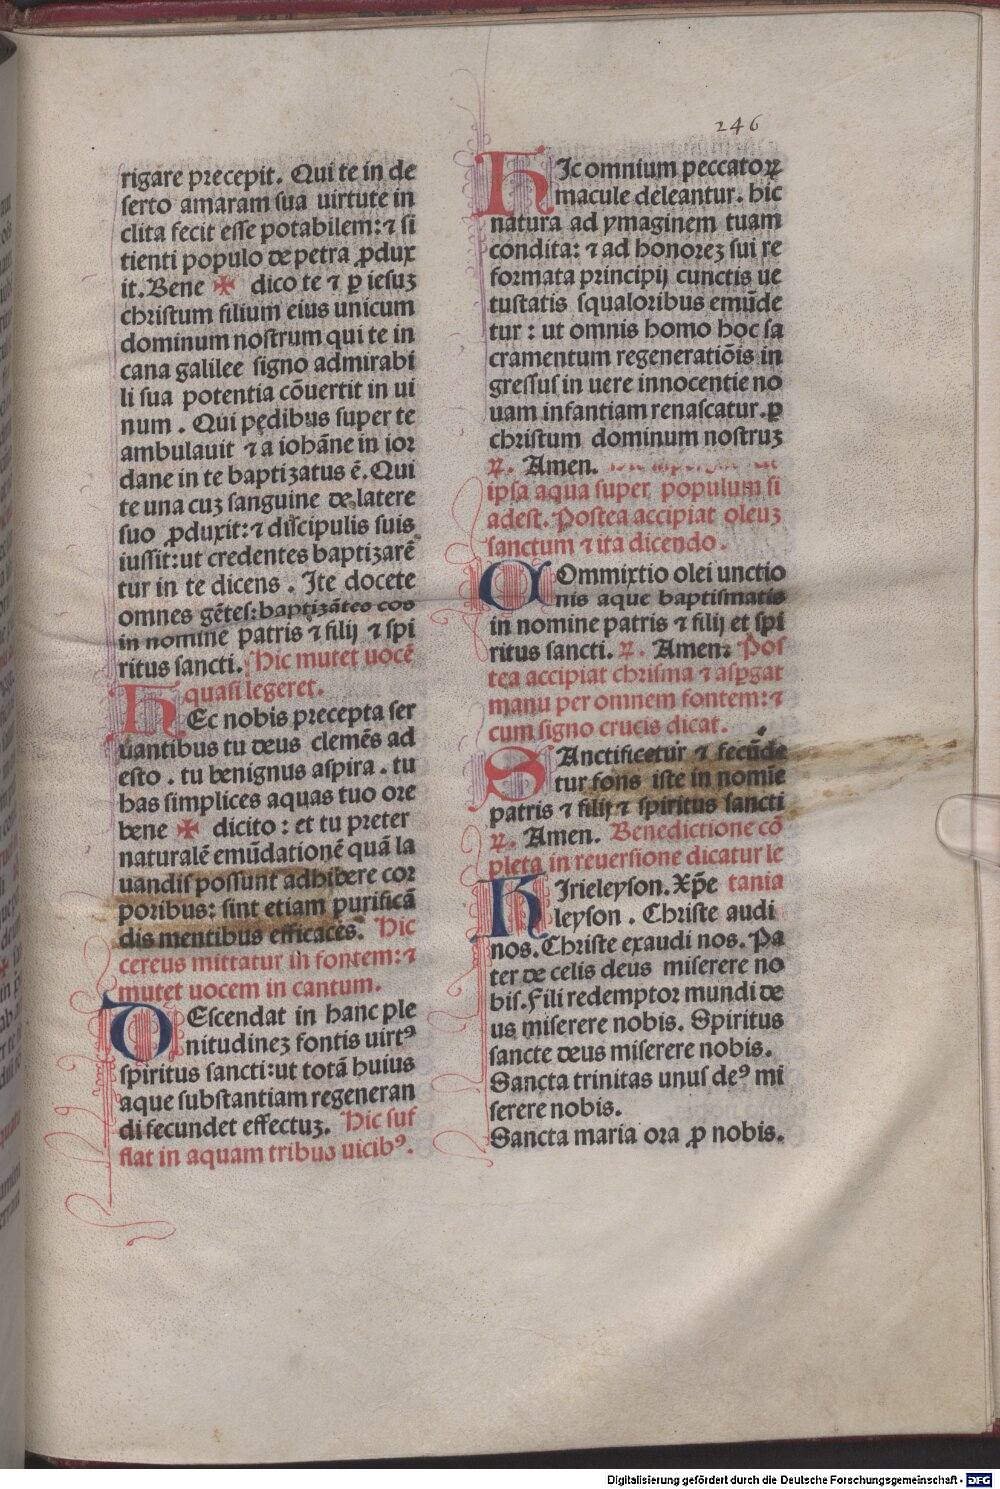 246
rigare precepit. Qui te in de
serto amaram sua uirtute in
clita fecit esse potabilem: ⁊ si
tienti populo de petra ꝓdux
it. Bene ✠ dico te ⁊ ꝑ iesuꝫ
christum filium eius unicum
dominum nostrum qui te in
cana galilee signo admirabi
li sua potentia cōuertit in ui
num . Qui pedibus super te
ambulauit ⁊ a iohāne in ior
dane in te baptizatus ē. Qui
te una cuꝫ sanguine de latere
suo ꝓduxit: ⁊ discipulis suis
iussit: ut credentes baptizarē
tur in te dicens . Ite docete
omnes gētes: baptizātes eos
in nomine patris ⁊ filij ⁊ spi
ritus sancti. Hic mutet uocē
quasi legeret.
HEc nobis precepta ser
uantibus tu deus clemēs ad
esto . tu benignus aspira . tu
has simplices aquas tuo ore
bene ✠ dicito : et tu preter
naturalē emūdationē quā la
uandis possunt adhibere cor
poribus: sint etiam purificā
dis mentibus efficaces. Hic
cereus mittatur in fontem: ⁊
mutet uocem in cantum.
DEscendat in hanc ple
nitudineꝫ fontis uirtꝰ
spiritus sancti: ut totā huius
aque substantiam regeneran
di fecundet effectuꝫ. Hic suf
flat in aquam tribus uicibꝰ.
HIc omnium peccatoꝝ
macule deleantur. hic
natura ad ymaginem tuam
condita: ⁊ ad honoreꝫ sui re
formata principij cunctis ue
tustatis squaloribus emūde
tur : ut omnis homo hoc sa
cramentum regeneratiōis in
gressus in uere innocentie no
uam infantiam renascatur. ꝑ
christum dominum nostruꝫ
℟. Amen.
ipsa aqua super populum si
adest. Postea accipiat oleuꝫ
sanctum ⁊ ita dicendo.
COmmixtio olei unctio
nis aque baptismatis
in nomine patris ⁊ filij et spi
ritus sancti. ℟. Amen: Pos
tea accipiat chrisma ⁊ aspgat
manu per omnem fontem: ⁊
cum signo crucis dicat.
SAnctificetur ⁊ fecūde
tur fons iste in nomīe
patris ⁊ filij ⁊ spiritus sancti
℟. Amen. Benedictione cō
pleta in reuersione dicatur le
KIrieleyson. Xp̄e tania
leyson . Christe audi
nos. Christe exaudi nos. Pa
ter de celis deus miserere no
bis. Fili redemptor mundi de
us miserere nobis. Spiritus
sancte deus miserere nobis.
Sancta trinitas unus deꝰ mi
serere nobis.
Sancta maria ora ꝓ nobis.
Digitalisierung gefördert durch die Deutsche Forschungsgemeinschaft - DFG